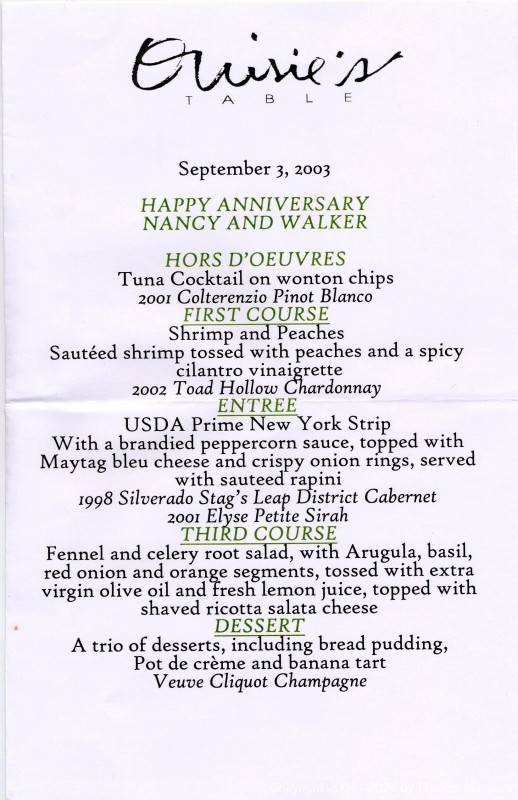 Ouisie's
TABLE
September 3, 2003
HAPPY ANNIVERSARY
NANCY AND WALKER
HORS D'OEUVRES
Tuna Cocktail on wonton chips
2001 Colterenzio Pinot Blanco
FIRST COURSE
Shrimp and Peaches
Sautéed shrimp tossed with peaches and a spicy
cilantro vinaigrette
2002 Toad Hollow Chardonnay
ENTREE
USDA Prime New York Strip
With a brandied peppercorn sauce, topped with
Maytag bleu cheese and crispy onion rings, served
with sauteed rapini
1998 Silverado Stag's Leap District Cabernet
2001 Elyse Petite Sirah
THIRD COURSE
Fennel and celery root salad, with Arugula, basil,
red onion and orange segments, tossed with extra
virgin olive oil and fresh lemon juice, topped with
shaved ricotta salata cheese
DESSERT
A trio of desserts, including bread pudding,
Pot de crème and banana tart
Veuve Cliquot Champagne